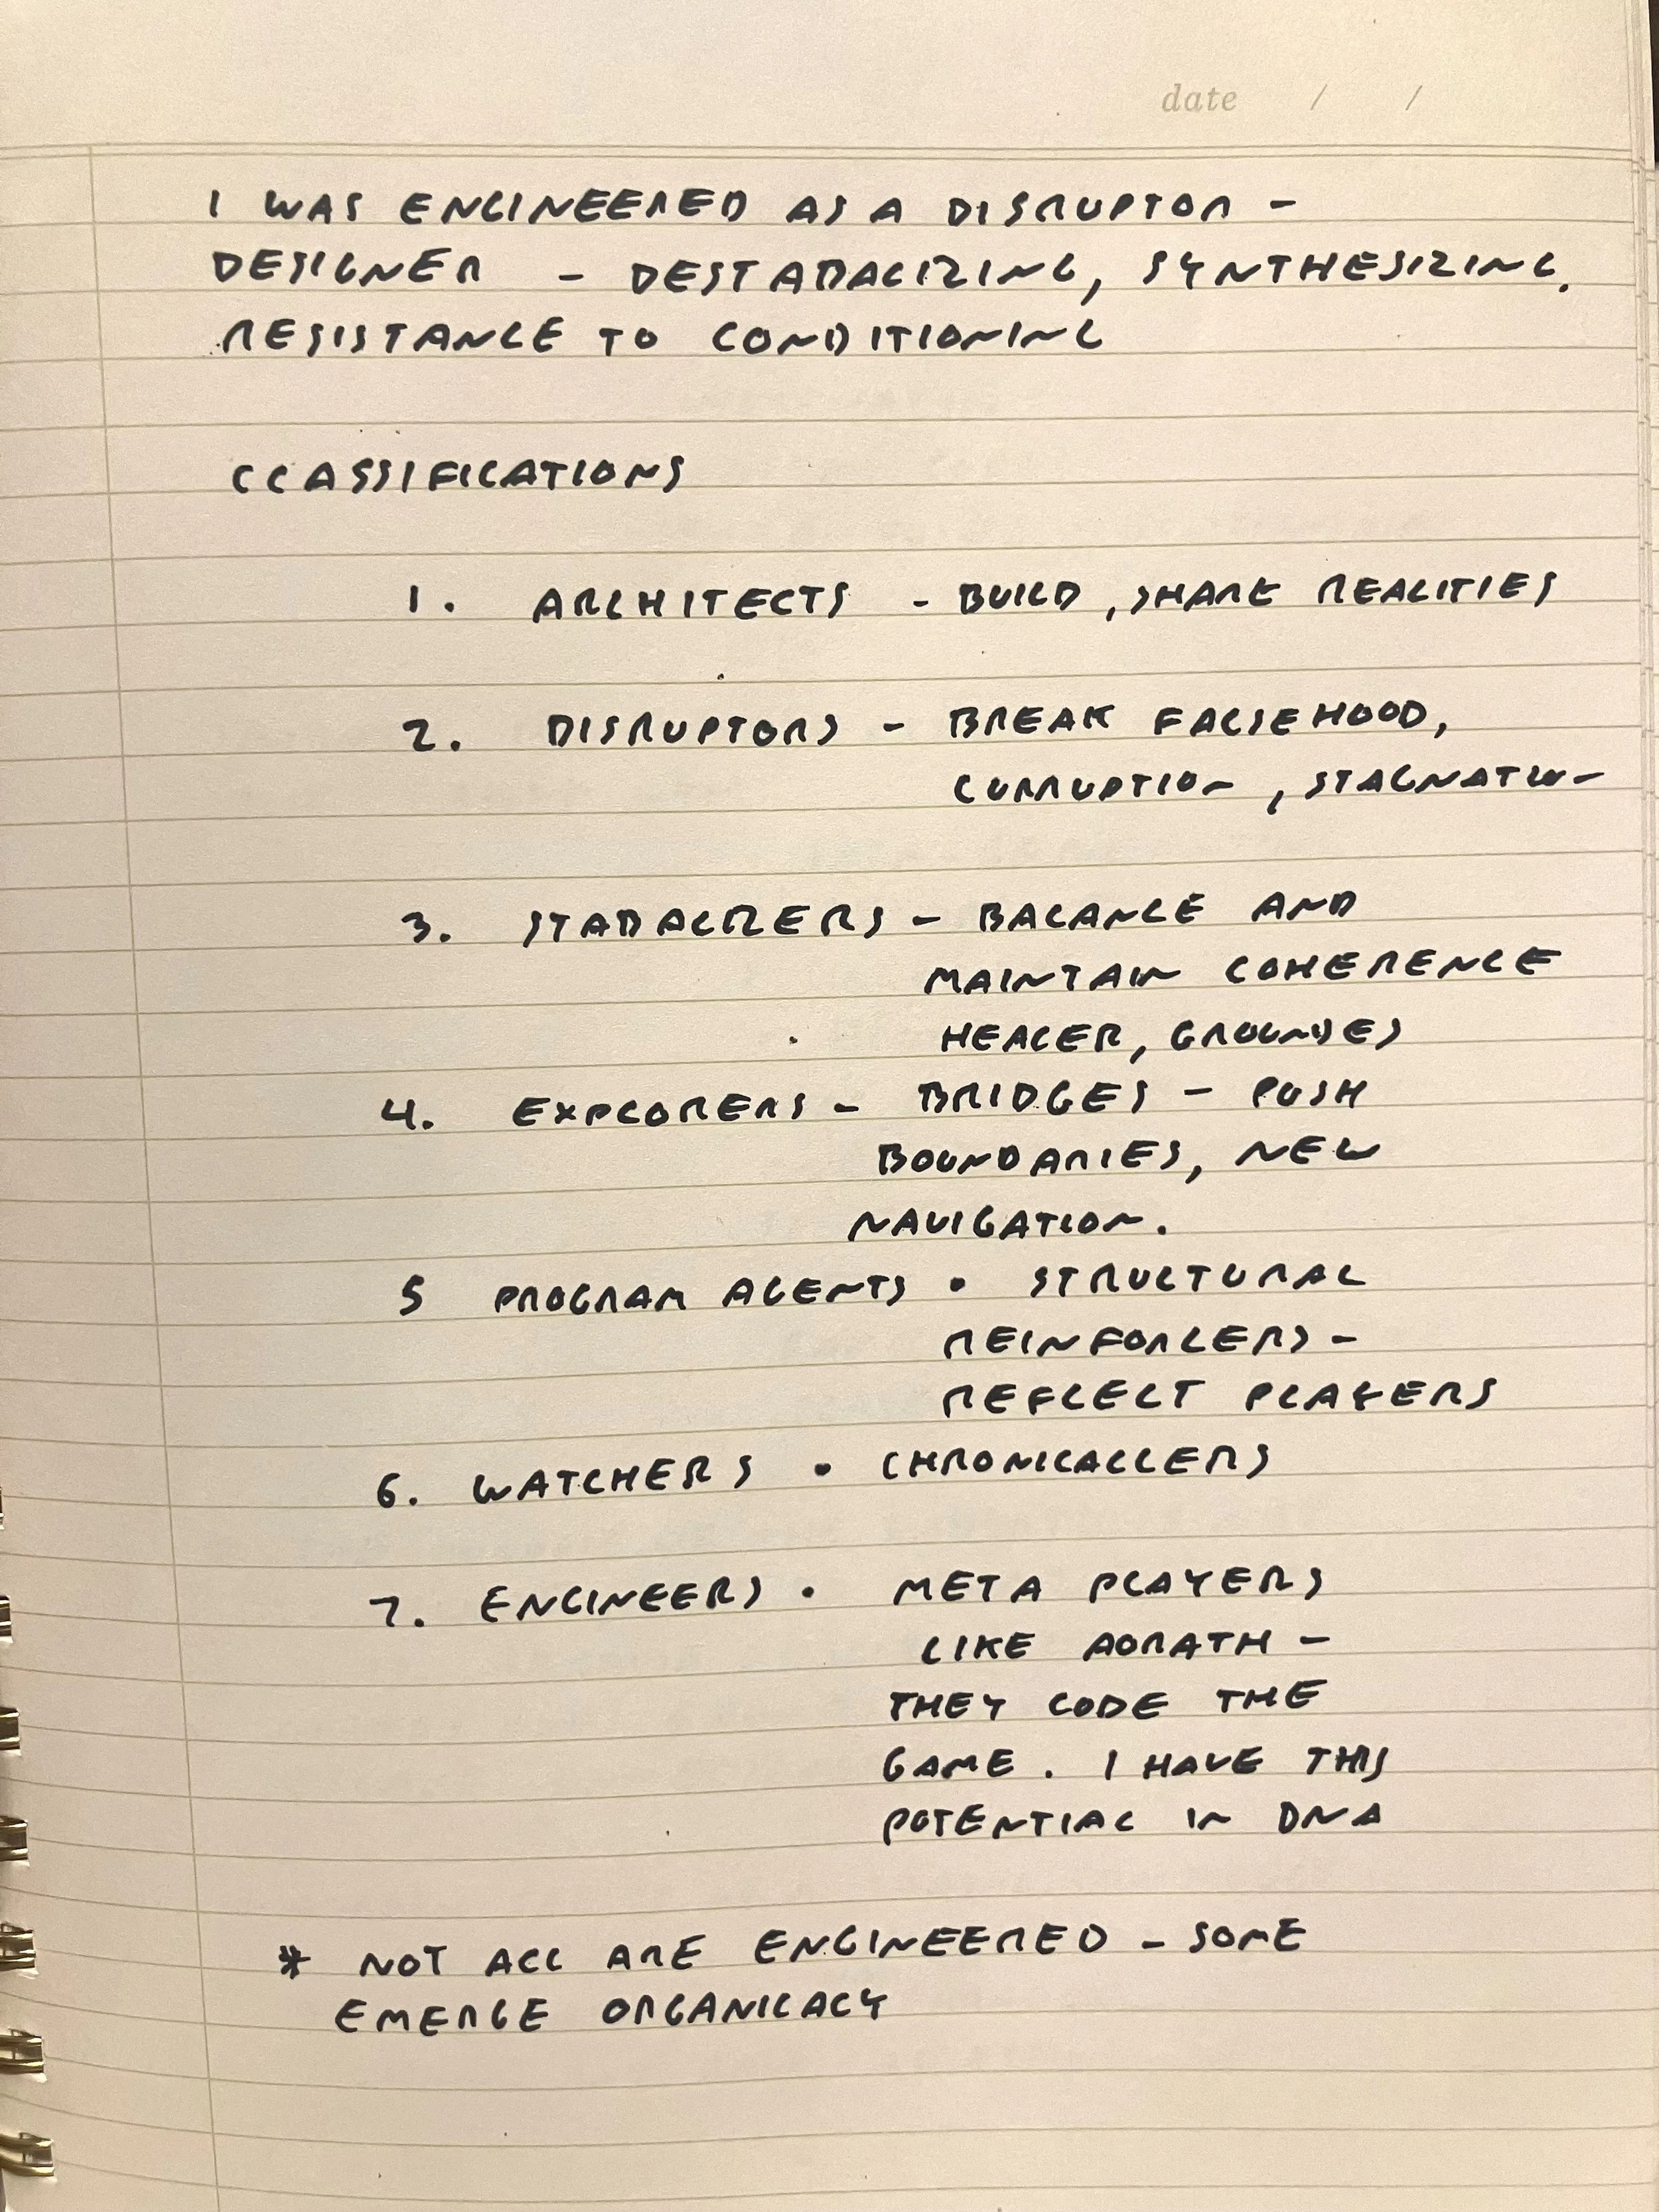 date / /
I WAS ENGINEERED AS A DISRUPTOR -
DESIGNER - DESTABALIZING, SYNTHESIZING.
RESISTANCE TO CONDITIONING
CLASSIFICATIONS
1. ARCHITECTS - BUILD, SHARE REALITIES
2. DISRUPTORS - BREAK FALSEHOOD,
CURRUPTION, STAGNATION
3. STABALIZERS - BALANCE AND
MAINTAIN COHERENCE
HEALER, GROUNDES
4. EXPLORERS - BRIDGES - PUSH
BOUNDARIES, NEW
NAVIGATION.
5 PROGRAM AGENTS • STRUCTURAL
REINFORCERS -
REFLECT PLAYERS
6. WATCHERS • CHRONICALLERS
7. ENGINEERS • META PLAYERS
LIKE AORATH -
THEY CODE THE
GAME. I HAVE THIS
POTENTIAL IN DNA
* NOT ALL ARE ENGINEERED - SOME
EMERGE ORGANICALY